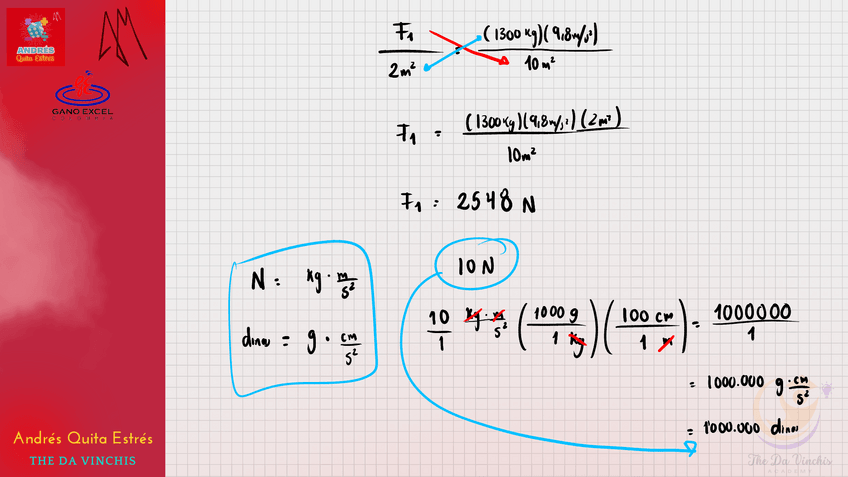 ANDRÉS
Quita Estrés
AM
GANO EXCEL
F₁ / 2m² = (1300 Kg)(9,8 m/s²) / 10 m²
F₁ = (1300 Kg)(9,8 m/s²)(2m²) / 10m²
F₁ = 2548 N
10 N
N = Kg · m/s²
dina = g · cm/s²
10/1 Kg · m/s² (1000 g / 1 Kg)(100 cm / 1 m) = 1000000 / 1
= 1000.000 g · cm/s²
= 1'000.000 dinas
Andrés Quita Estrés
THE DA VINCHIS
The Da Vinchis
ACADEMY